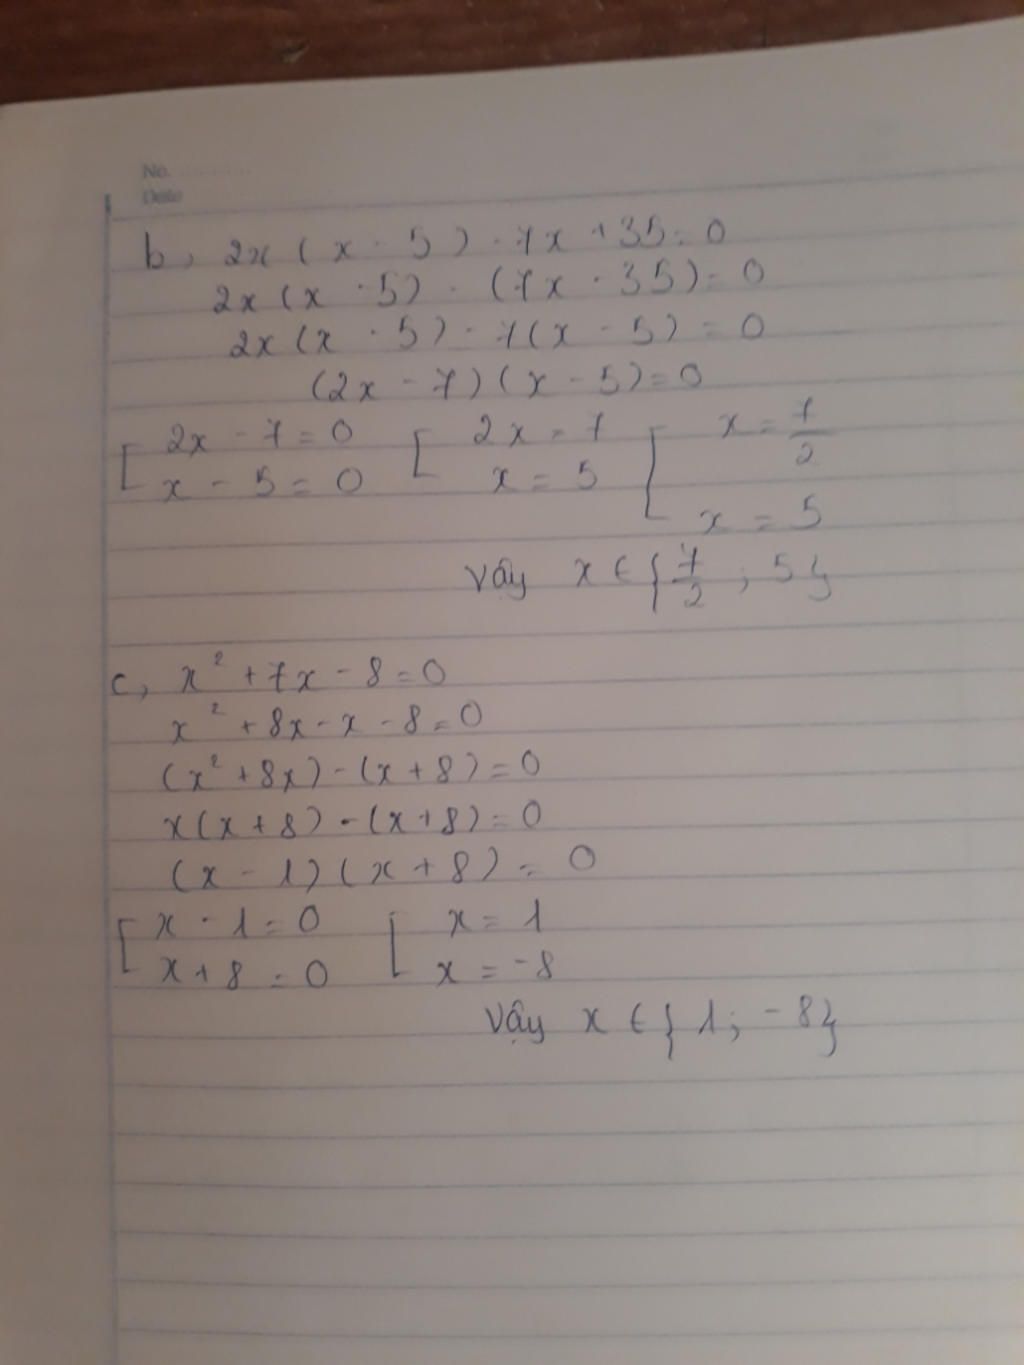 No.
Date
b, 2x(x - 5) - 7x + 35 = 0
2x(x - 5) - (7x - 35) = 0
2x(x - 5) - 7(x - 5) = 0
(2x - 7)(x - 5) = 0
[ 2x - 7 = 0 [ 2x = 7 [ x = 7/2
x - 5 = 0 x = 5
x = 5
Vây x ∈ { 7/2 ; 5 }
c, x² + 7x - 8 = 0
x² + 8x - x - 8 = 0
(x² + 8x) - (x + 8) = 0
x(x + 8) - (x + 8) = 0
(x - 1)(x + 8) = 0
[ x - 1 = 0 [ x = 1
x + 8 = 0 x = -8
Vậy x ∈ { 1 ; -8 }